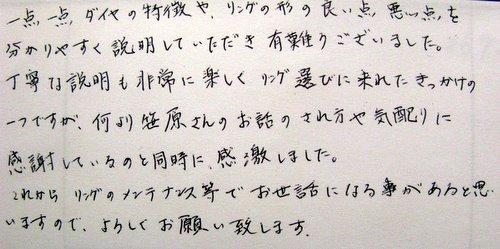 一点一点ダイヤの特徴や、リングの形の良い点 悪い点を
分かりやすく説明していただき有難うございました。
丁寧な説明も非常に楽しくリング選びに来れたきっかけの
一つですが、何より笹原さんのお話のされ方や気配りに
感謝しているのと同時に、感激しました。
これから リングのメンテナンス等でお世話になる事があると思
いますので、よろしくお願い致します。